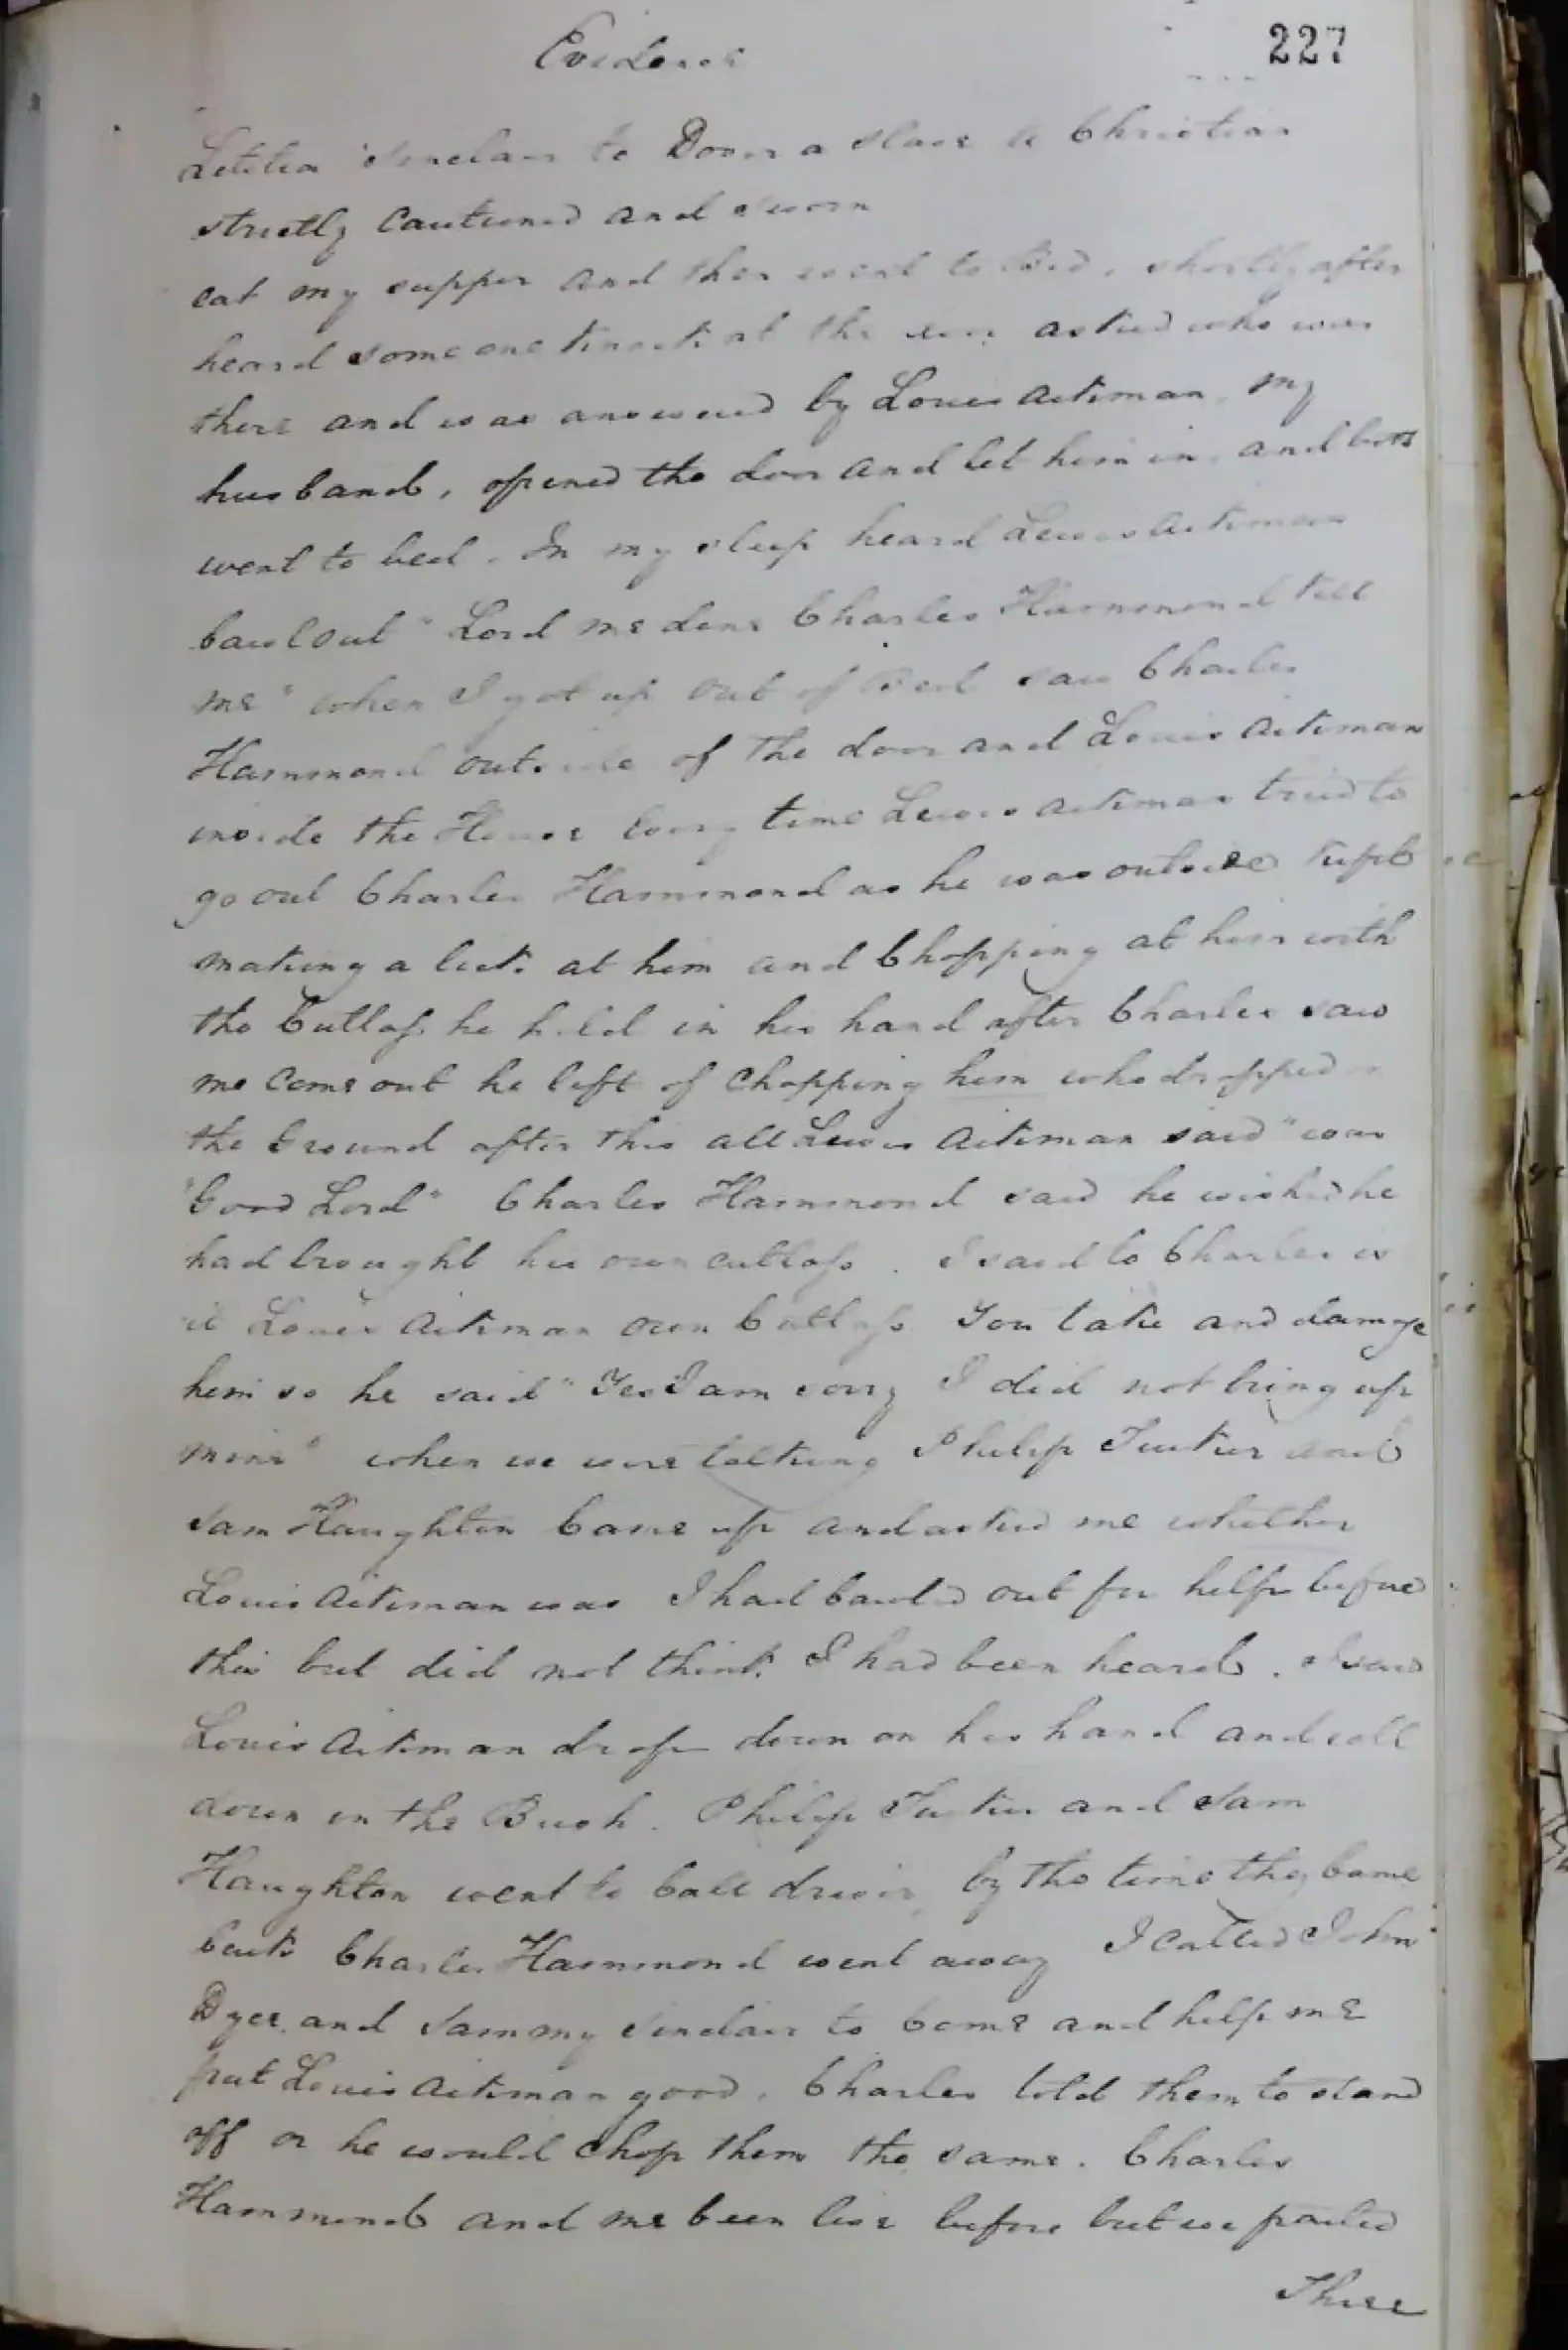 Evidence
227
Letitia Sinclair to Dover a slave a Christian
strictly Cautioned and sworn
eat my supper and then went to Bed, shortly after
heard some one knock at the door asked who was
there and was answered by Louis Aikman, my
husband, opened the door and let him in, and both
went to bed. In my sleep heard Lewis Aikman
bawl out "Lord me done Charles Hammond kill
me" when I got up out of Bed saw Charles
Hammond outside of the door and Louis Aikman
inside the House Every time Lewis Aikman tried to
go out Charles Hammond as he was outside kept
making a lick at him and Chopping at him with
the Cutlass he held in his hand after Charles saw
me Come out he left of Chopping him who dropped on
the Ground after this all Lewis Aikman said "was
"Good Lord" Charles Hammond said he wished he
had brought his own cutlass. I said to Charles is
it Louis Aikman own Cutlass You take and damage
him so he said "Yes I am sorry I did not bring up
mine" when we were talking Philip Tucker and
Sam Haughton Came up and asked me whether
Louis Aikman was I had bawled out for help before
this but did not think I had been heard. I saw
Louis Aikman drop down on his hand and roll
down in the Bush. Philip Tucker and Sam
Haughton went to Call driver, by the time they Came
back Charles Hammond went away I Called John
Dyer and Sammy Sinclair to Come and help me
put Louis Aikman good. Charles told them to stand
off or he would Chop them the same. Charles
Hammond and me been live before but we parted
These